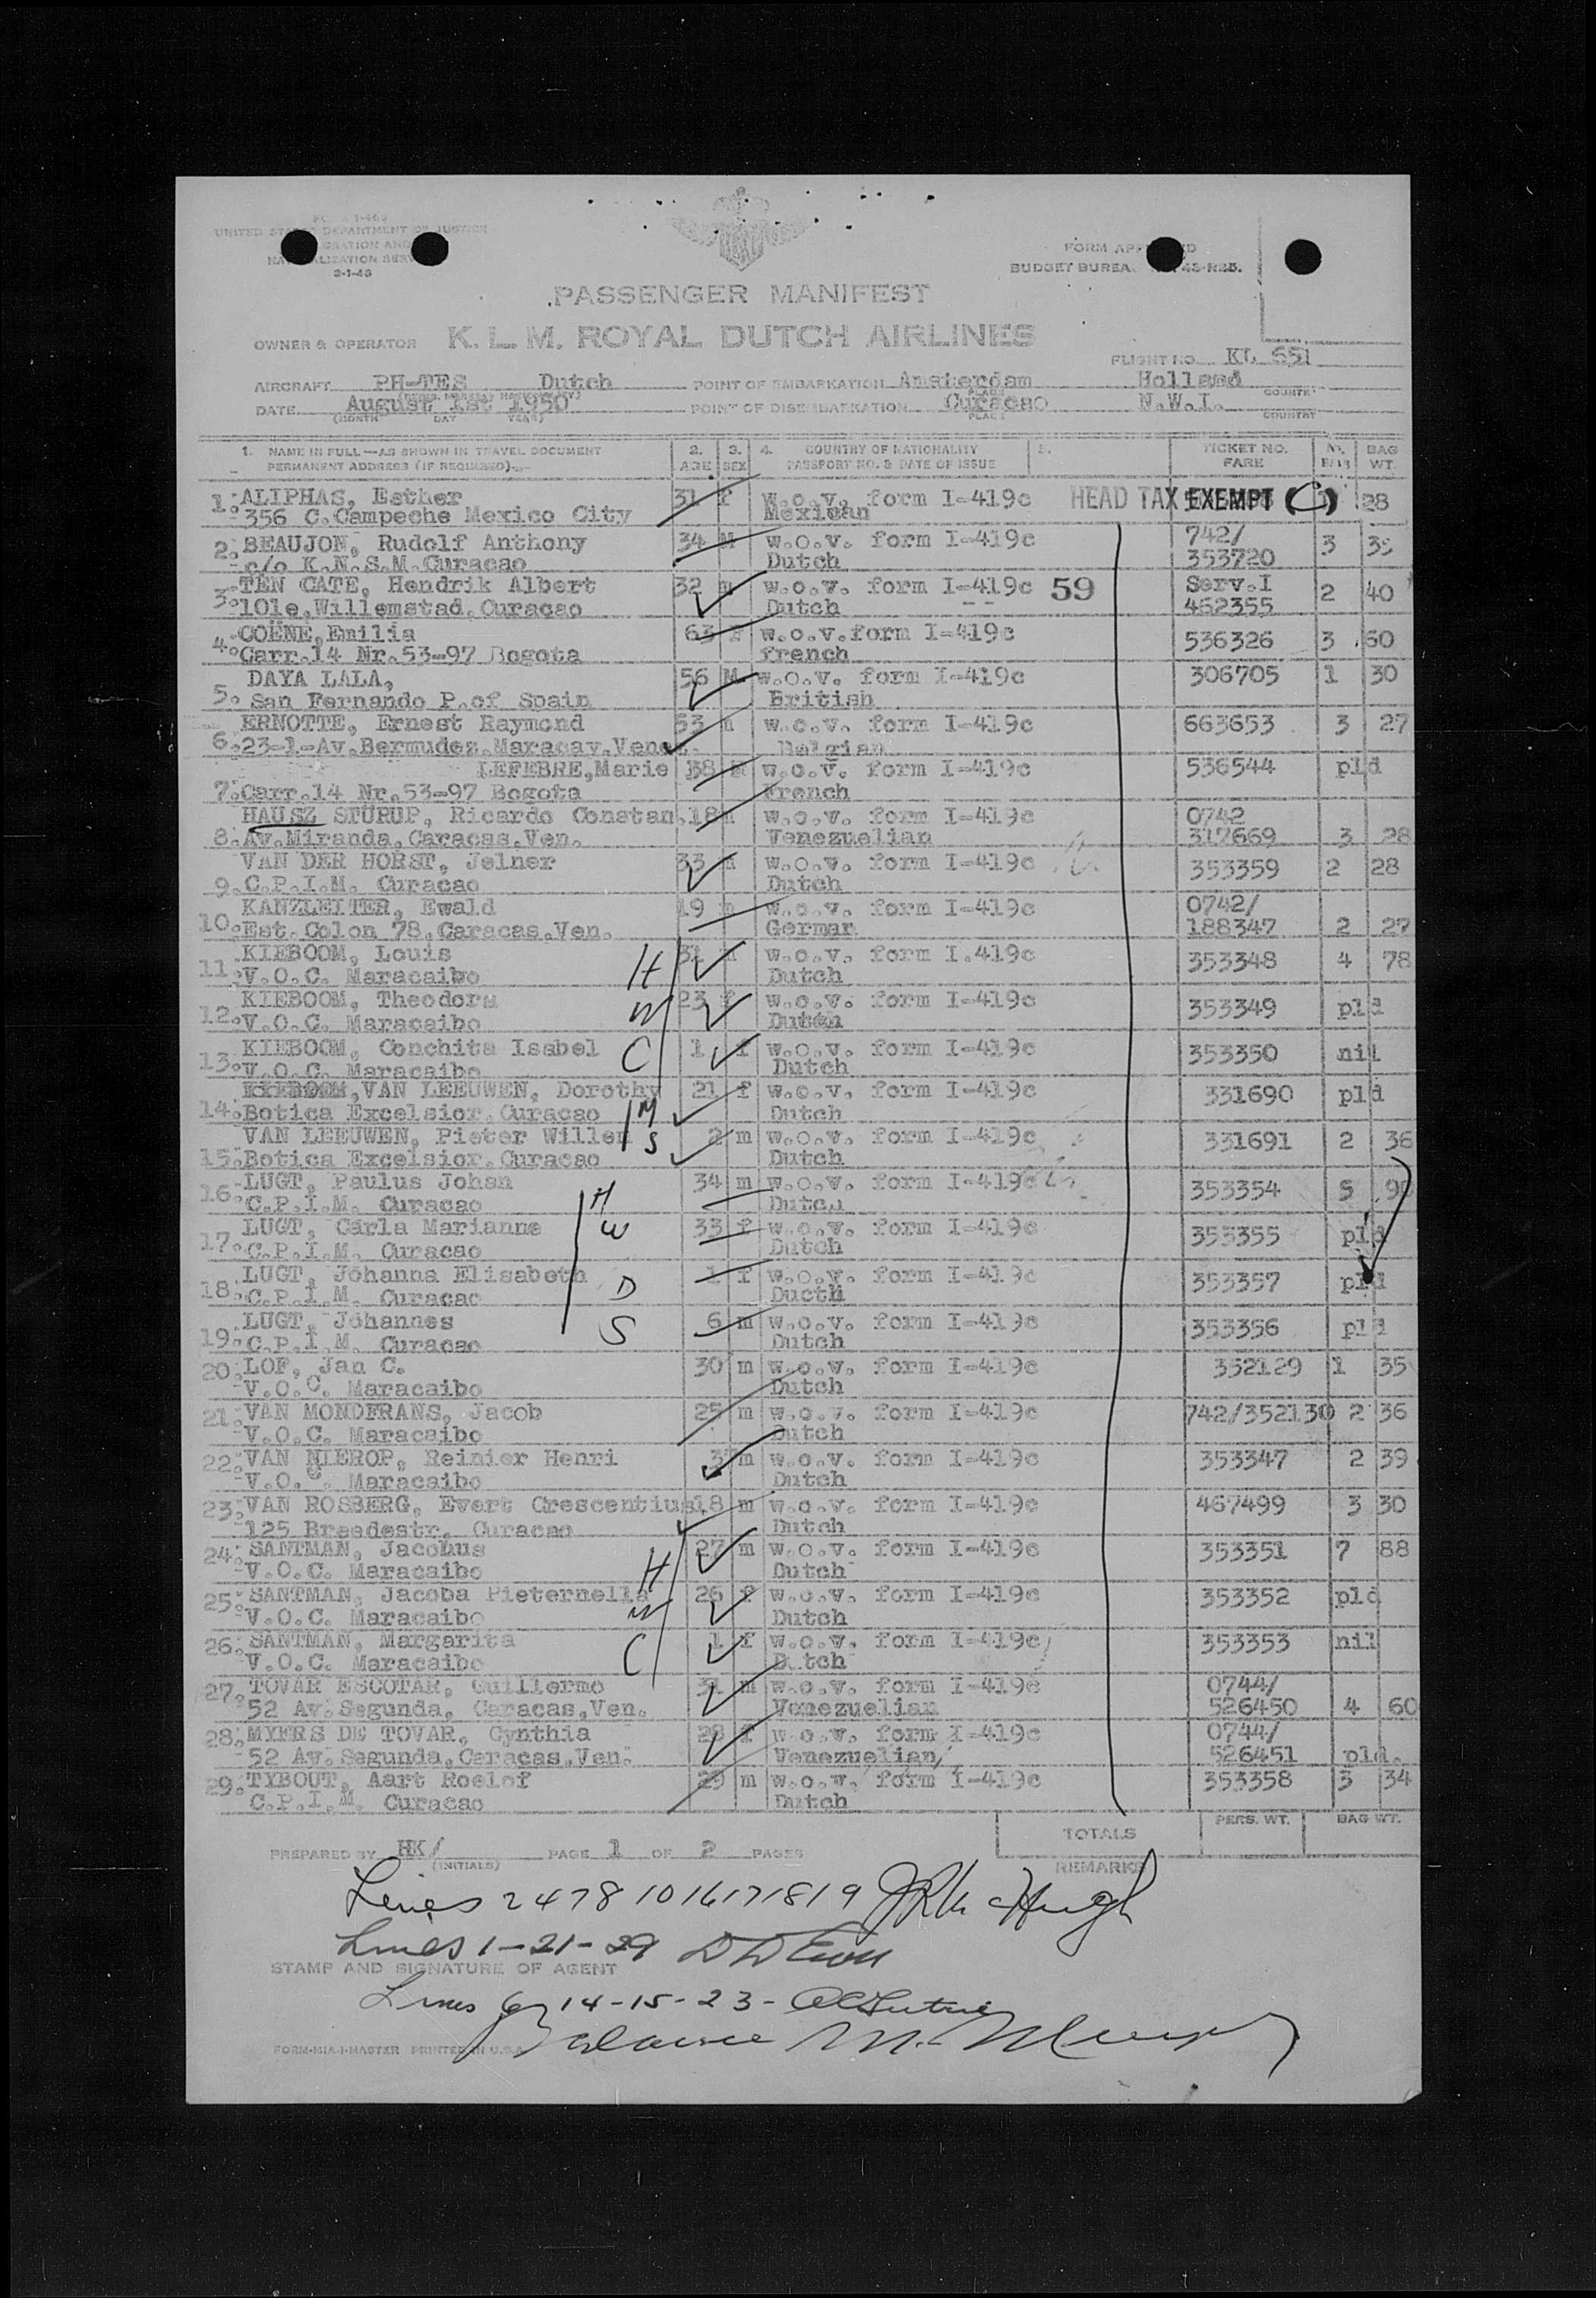 UNITED STATES DEPARTMENT OF JUSTICE
3-1-49
FORM APP
BUDGET BUREA 43-R25.
PASSENGER MANIFEST
OWNER & OPERATOR K. L. M. ROYAL DUTCH AIRLINES
FLIGHT NO. KL 651
AIRCRAFT PH-TES Dutch POINT OF EMBARKATION Amsterdam Holland
DATE August 1st 1950 POINT OF DISEMBARKATION Curacao N.W.I.
(MONTH DAY YEAR) PLACE COUNTRY
1. NAME IN FULL—AS SHOWN IN TRAVEL DOCUMENT 2. 3. 4. COUNTRY OF NATIONALITY 5. TICKET NO. NO. BAG
PERMANENT ADDRESS (IF REQUIRED) AGE SEX PASSPORT NO. & DATE OF ISSUE FARE BAG WT.
1. ALIPHAS, Esther 31 f w.o.v. form I-419c HEAD TAX EXEMPT (C) 1 28
356 C.Campeche Mexico City Mexican
2. BEAUJON, Rudolf Anthony 34 M w.o.v. form I-419c 742/ 3
c/o K.N.S.M.Curacao Dutch 353720
3. TEN CATE, Hendrik Albert 32 m w.o.v. form I-419c 59 Serv.I 2 40
101e,Willemstad.Curacao Dutch 462355
4. COËNE,Emilia 63 F w.o.v.form I-419c 536326 3 60
Carr.14 Nr.53-97 Bogota french
DAYA LALA, 56 M w.o.v. form I-419c 306705 1 30
5. San Fernando P.of Spain British
ERNOTTE, Ernest Raymond 53 m w.o.v. form I-419c 663653 3 27
6. 23-1-Av.Bermudez.Maracay.Venez. Belgian
LEFEBRE,Marie 38 w.o.v. form I-419c 536544 pld
7. Carr.14 Nr.53-97 Bogota French
HAUSZ STURUP, Ricardo Constan. 18 m w.o.v. form I-419c 0742
8. Av.Miranda.Caracas.Ven. Venezuelian 317669 3 28
VAN DER HORST, Jelner 33 m w.o.v. form I-419c 353359 2 28
9. C.P.I.M. Curacao Dutch
KANZLEITER, Ewald 19 m w.o.v. form I-419c 0742/
10. Est. Colon 78.Caracas.Ven. German 188347 2 27
11. KIEBOOM, Louis H m w.o.v. form I.419c 353348 4 78
V.O.C. Maracaibo Dutch
12. KIEBOOM, Theodora W 23 f w.o.v. form I-419c 353349 pld
V.O.C. Maracaibo Dutch
13. KIEBOOM, Conchita Isabel C 1 f w.o.v. form I-419c 353350 nil
V.O.C. Maracaibo Dutch
KIEBOOM,VAN LEEUWEN, Dorothy 21 f w.o.v. form I-419c 331690 pld
14. Botica Excelsior.Curacao M Dutch
VAN LEEUWEN, Pieter Willem S 2 m w.o.v. form I-419c 331691 2 36
15. Botica Excelsior.Curacao Dutch
16. LUGT, Paulus Johan H 34 m w.o.v. form I-419c 353354 5
C.P.I.M. Curacao Dutch
17. LUGT, Carla Marianne W 33 f w.o.v. form I-419c 353355 pld
C.P.I.M. Curacao Dutch
18. LUGT, Johanna Elisabeth D 1 f w.o.v. form I-419c 353357 pld
C.P.I.M. Curacao Ducth
19. LUGT, Johannes S 6 m w.o.v. form I-419c 353356 pld
C.P.I.M. Curacao Dutch
20. LOF, Jan C. 30 m w.o.v. form I-419c 352129 1 35
V.O.C. Maracaibo Dutch
21. VAN MONDFRANS, Jacob 25 m w.o.v. form I-419c 742/352130 2 36
V.O.C. Maracaibo Dutch
22. VAN NIEROP, Reinier Henri m w.o.v. form I-419c 353347 2 39
V.O.C. Maracaibo Dutch
23. VAN ROSBERG, Evert Crescentius 18 m w.o.v. form I-419c 467499 3 30
125 Breedestr. Curacao Dutch
24. SANTMAN, Jacobus H 27 m w.o.v. form I-419c 353351 7 88
V.O.C. Maracaibo Dutch
25. SANTMAN, Jacoba Pieternella W 26 f w.o.v. form I-419c 353352 pld
V.O.C. Maracaibo Dutch
26. SANTMAN, Margarita C 1 f w.o.v. form I-419c 353353 nil
V.O.C. Maracaibo Dutch
27. TOVAR ESCOTAR, Guillermo 31 m w.o.v. form I-419c 0744/
52 Av.Segunda, Caracas,Ven. Venezuelian 526450 4 60
28. MYERS DE TOVAR, Cynthia 28 f w.o.v. form I-419c 0744/
52 Av. Segunda,Caracas,Ven. Venezuelian 526451 pld.
29. TYBOUT, Aart Roelof 29 m w.o.v. form I-419c 353358 3 34
C.P.I.M. Curacao Dutch
TOTALS PERS. WT. BAG WT.
PREPARED BY HK/ PAGE 1 OF 2 PAGES
(INITIALS) REMARKS
Lines 2 4 7 8 10 16 17 18 19
Lines 1-21-29
STAMP AND SIGNATURE OF AGENT
Lines 6 14-15-23-
Balance
FORM-MIA-1-MASTER PRINTED IN U.S.A.